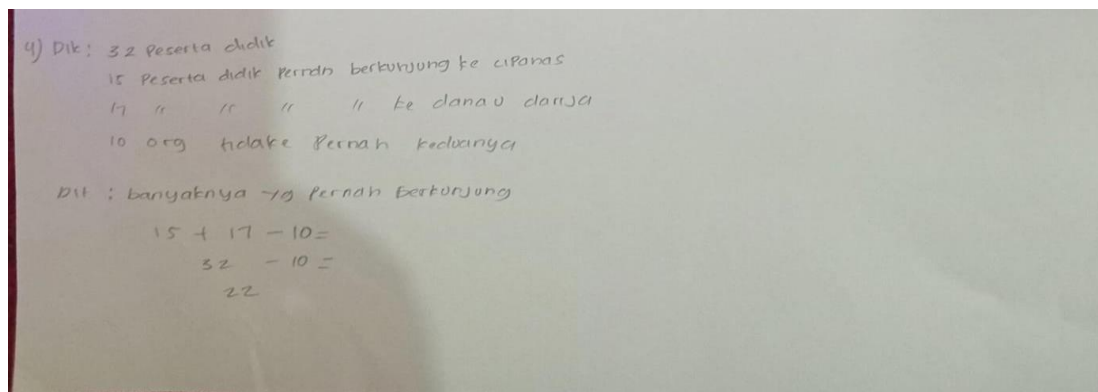 4) Dik : 32 Peserta didik
15 Peserta didik Pernah berkunjung ke cipanas
17 " " " " ke danau dariza
10 org tidake Pernah keduanya
Dit : banyaknya yg Pernah berkunjung
15 + 17 - 10 =
32 - 10 =
22